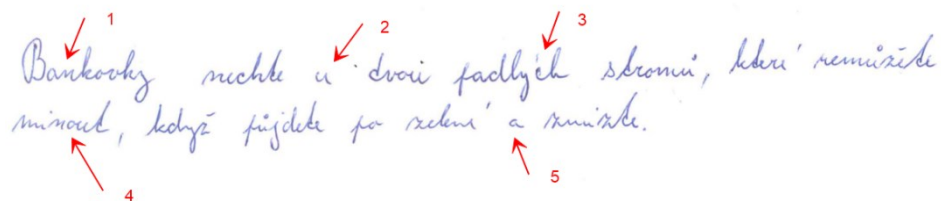 1 2 3
Bankovky nechte u dvou padlých stromů, které nemůžete
minout, když půjdete po zelené a zmizte.
4 5